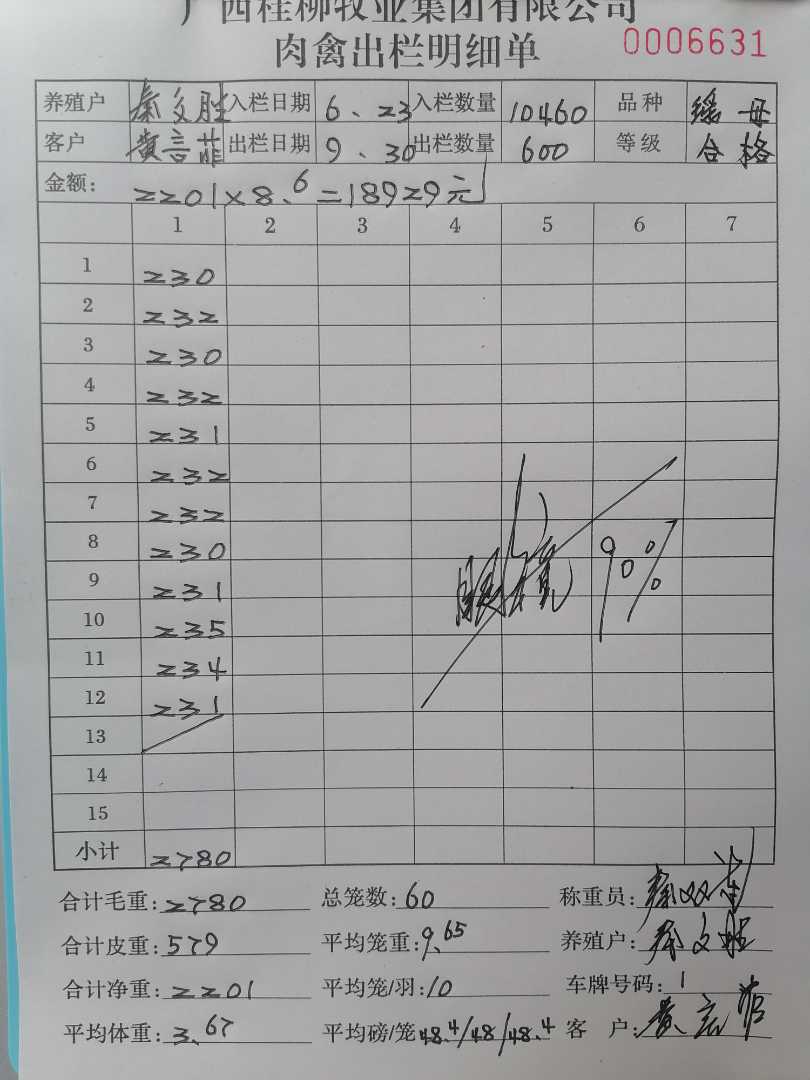 广西桂柳牧业集团有限公司
肉禽出栏明细单 0006631
养殖户 秦文胜 入栏日期 6、23 入栏数量 10460 品种 瑶母
客户 黄言菲 出栏日期 9、30 出栏数量 600 等级 合格
金额: 2201×8.6=18929元
1 2 3 4 5 6 7
1 230
2 232
3 230
4 232
5 231
6 232
7 232
8 230
9 231
10 235
11 234
12 231
13
14
15
90%
小计 2780
合计毛重: 2780 总笼数: 60 称重员:
合计皮重: 579 平均笼重: 9.65 养殖户: 秦文胜
合计净重: 2201 平均笼/羽: 10 车牌号码: 1
平均体重: 3.67 平均磅/笼 48.4/48/48.4 客 户: 黄言菲